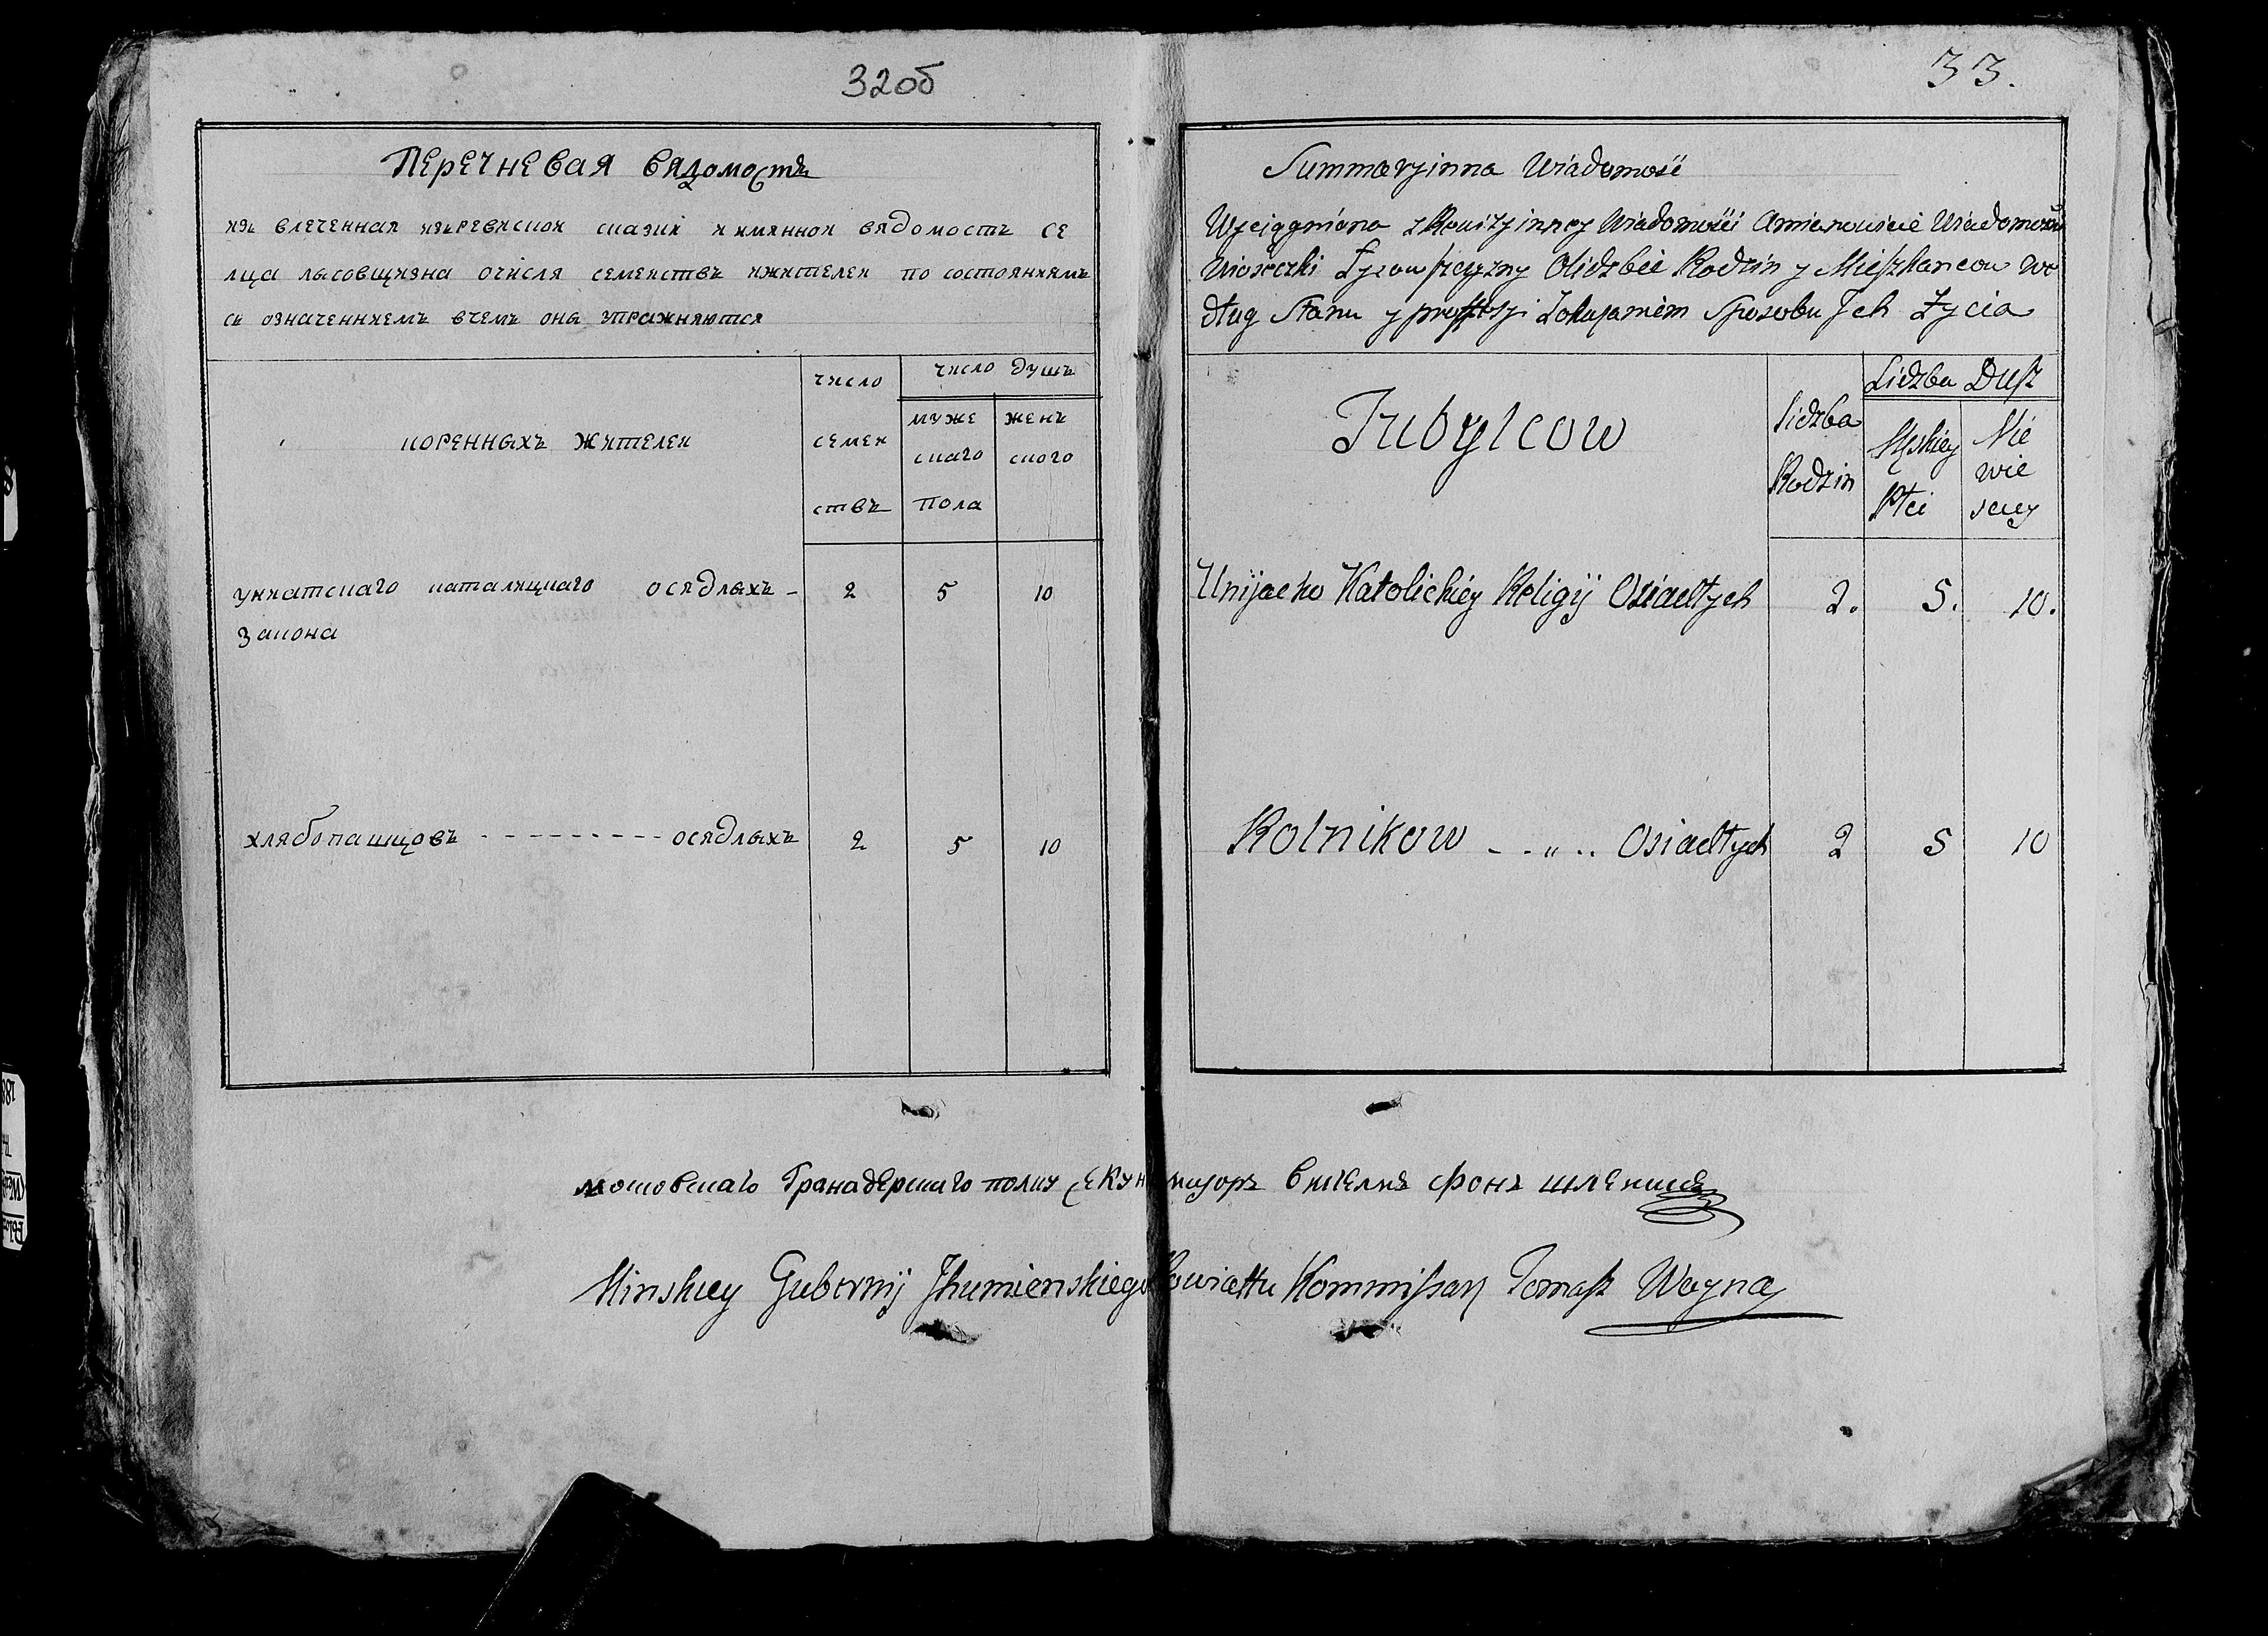 32об
Перечневая вядомость
изъ влеченная изъревиской сказки и имянной вядомость се
лца лысовщизна очисля семействъ ижителей по состояниямъ
съ означенияемъ вчемъ оны упражняются
коренныхъ жителей
число
семей
ствъ
число душъ
муже
скаго
пола
женъ
ского
униатскаго каталицкаго осядлыхъ - 2 5 10
закона
хлябопашцовъ - - - - - - - - - осядлыхъ 2 5 10
33.
Summaryinna Wiadomość
Wyciągniona z Rewizyinney Wiadomości Amienowicie Wiadomości
Wioseczki Łysowszczyzny Olidzbie Rodzin y Mieszkancow we
dług Stanu y professyi Zokazaniem Sposobu Jch Życia
Tubylcow
Lidzba
Rodzin
Lidzba Dusz
Męskiey
Płci
Nie
wie
sciey
Unijacko Katolickiey Religij Osiadłych 2. 5. 10.
Rolnikow - - „ - - Osiadłych 2 5 10
московскаго Гранадерскаго полку секундмаиоръ вилгелмъ фонъ
Minskiey Gubernij Jhumienskiego Powiattu Kommissarz Tomasz Wayna